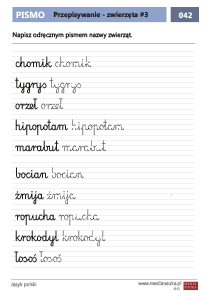 PISMO Przepisywanie - zwierzęta #3 042
Napisz odręcznym pismem nazwy zwierząt.
chomik chomik
tygrys tygrys
orzeł orzeł
hipopotam hipopotam
marabut marabut
bocian bocian
żmija żmija
ropucha ropucha
krokodyl krokodyl
łosoś łosoś
Język polski www.medianauka.pl